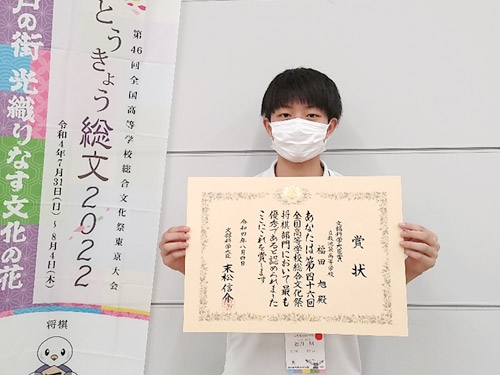 戸の街 光織りなす文化の花
とうきょう総文2022
第46回全国高等学校総合文化祭東京大会
令和4年7月31日(日)~8月4日(木)
将棋
賞状
文部科学大臣賞
高等学校
福田 旭 殿
あなたは第四十六回
全国高等学校総合文化祭
将棋部門において最も
優秀であると認められました
ここにこれを賞します
令和四年八月四日
文部科学大臣
末松信介